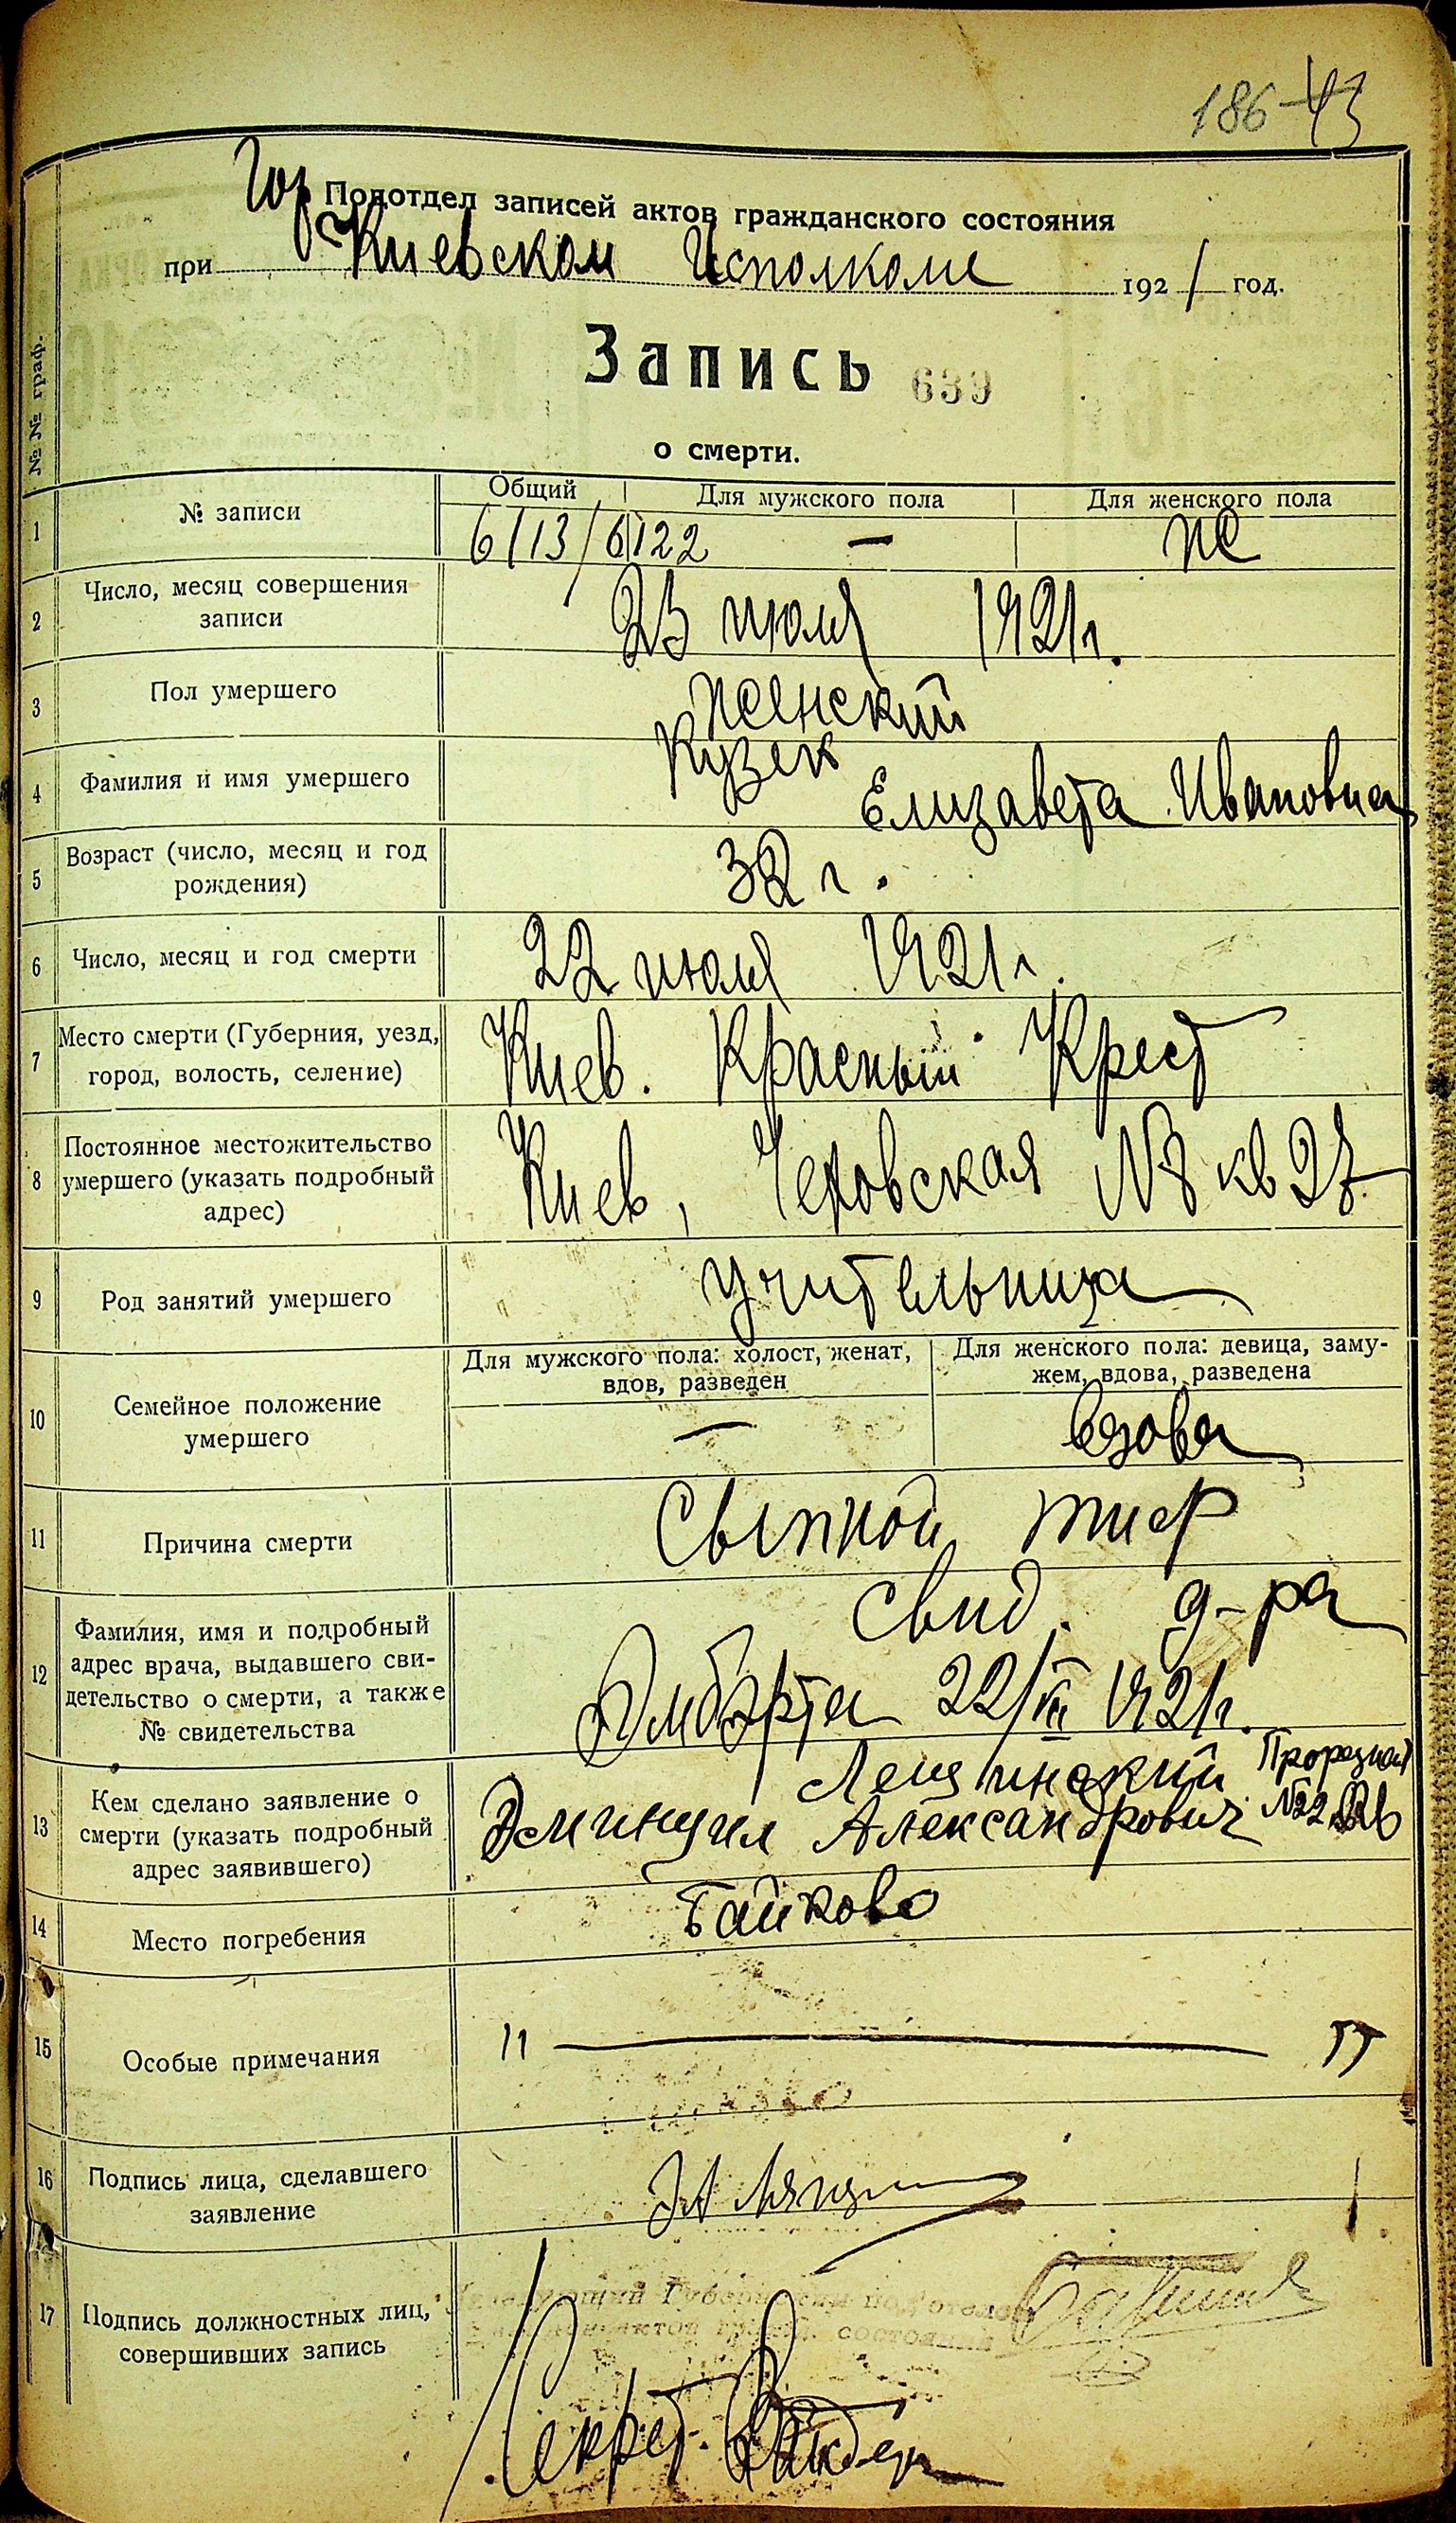 186 43
Гор Подотдел записей актов гражданского состояния
при Киевском Исполкоме 1921 год.
Запись 639
о смерти.
№№ граф.
Общий Для мужского пола Для женского пола
1 № записи 6113/6122 — же
2 Число, месяц совершения
записи
23 июля 1921г.
3 Пол умершего женский
4 Фамилия и имя умершего Кузек
Елизавета Ивановна
5 Возраст (число, месяц и год
рождения)
32 г.
6 Число, месяц и год смерти 22 июля 1921г.
7 Место смерти (Губерния, уезд,
город, волость, селение)
Киев. Красный Крест
8 Постоянное местожительство
умершего (указать подробный
адрес)
Киев, Чеховская № 8 кв 27
9 Род занятий умершего учительница
10 Семейное положение
умершего
Для мужского пола: холост, женат,
вдов, разведен
Для женского пола: девица, заму-
жем, вдова, разведена
— вдова
11 Причина смерти Сыпной тиф
12 Фамилия, имя и подробный
адрес врача, выдавшего сви-
детельство о смерти, а также
№ свидетельства
свид. д-ра
22/VII 1921г.
13 Кем сделано заявление о
смерти (указать подробный
адрес заявившего)
Лещинский Прорезная
Александрович №22
14 Место погребения Байково
15 Особые примечания " — "
16 Подпись лица, сделавшего
заявление
17 Подпись должностных лиц,
совершивших запись
Заведующий Губернским подотделом
записей актов гражд. состояния
Секрет.